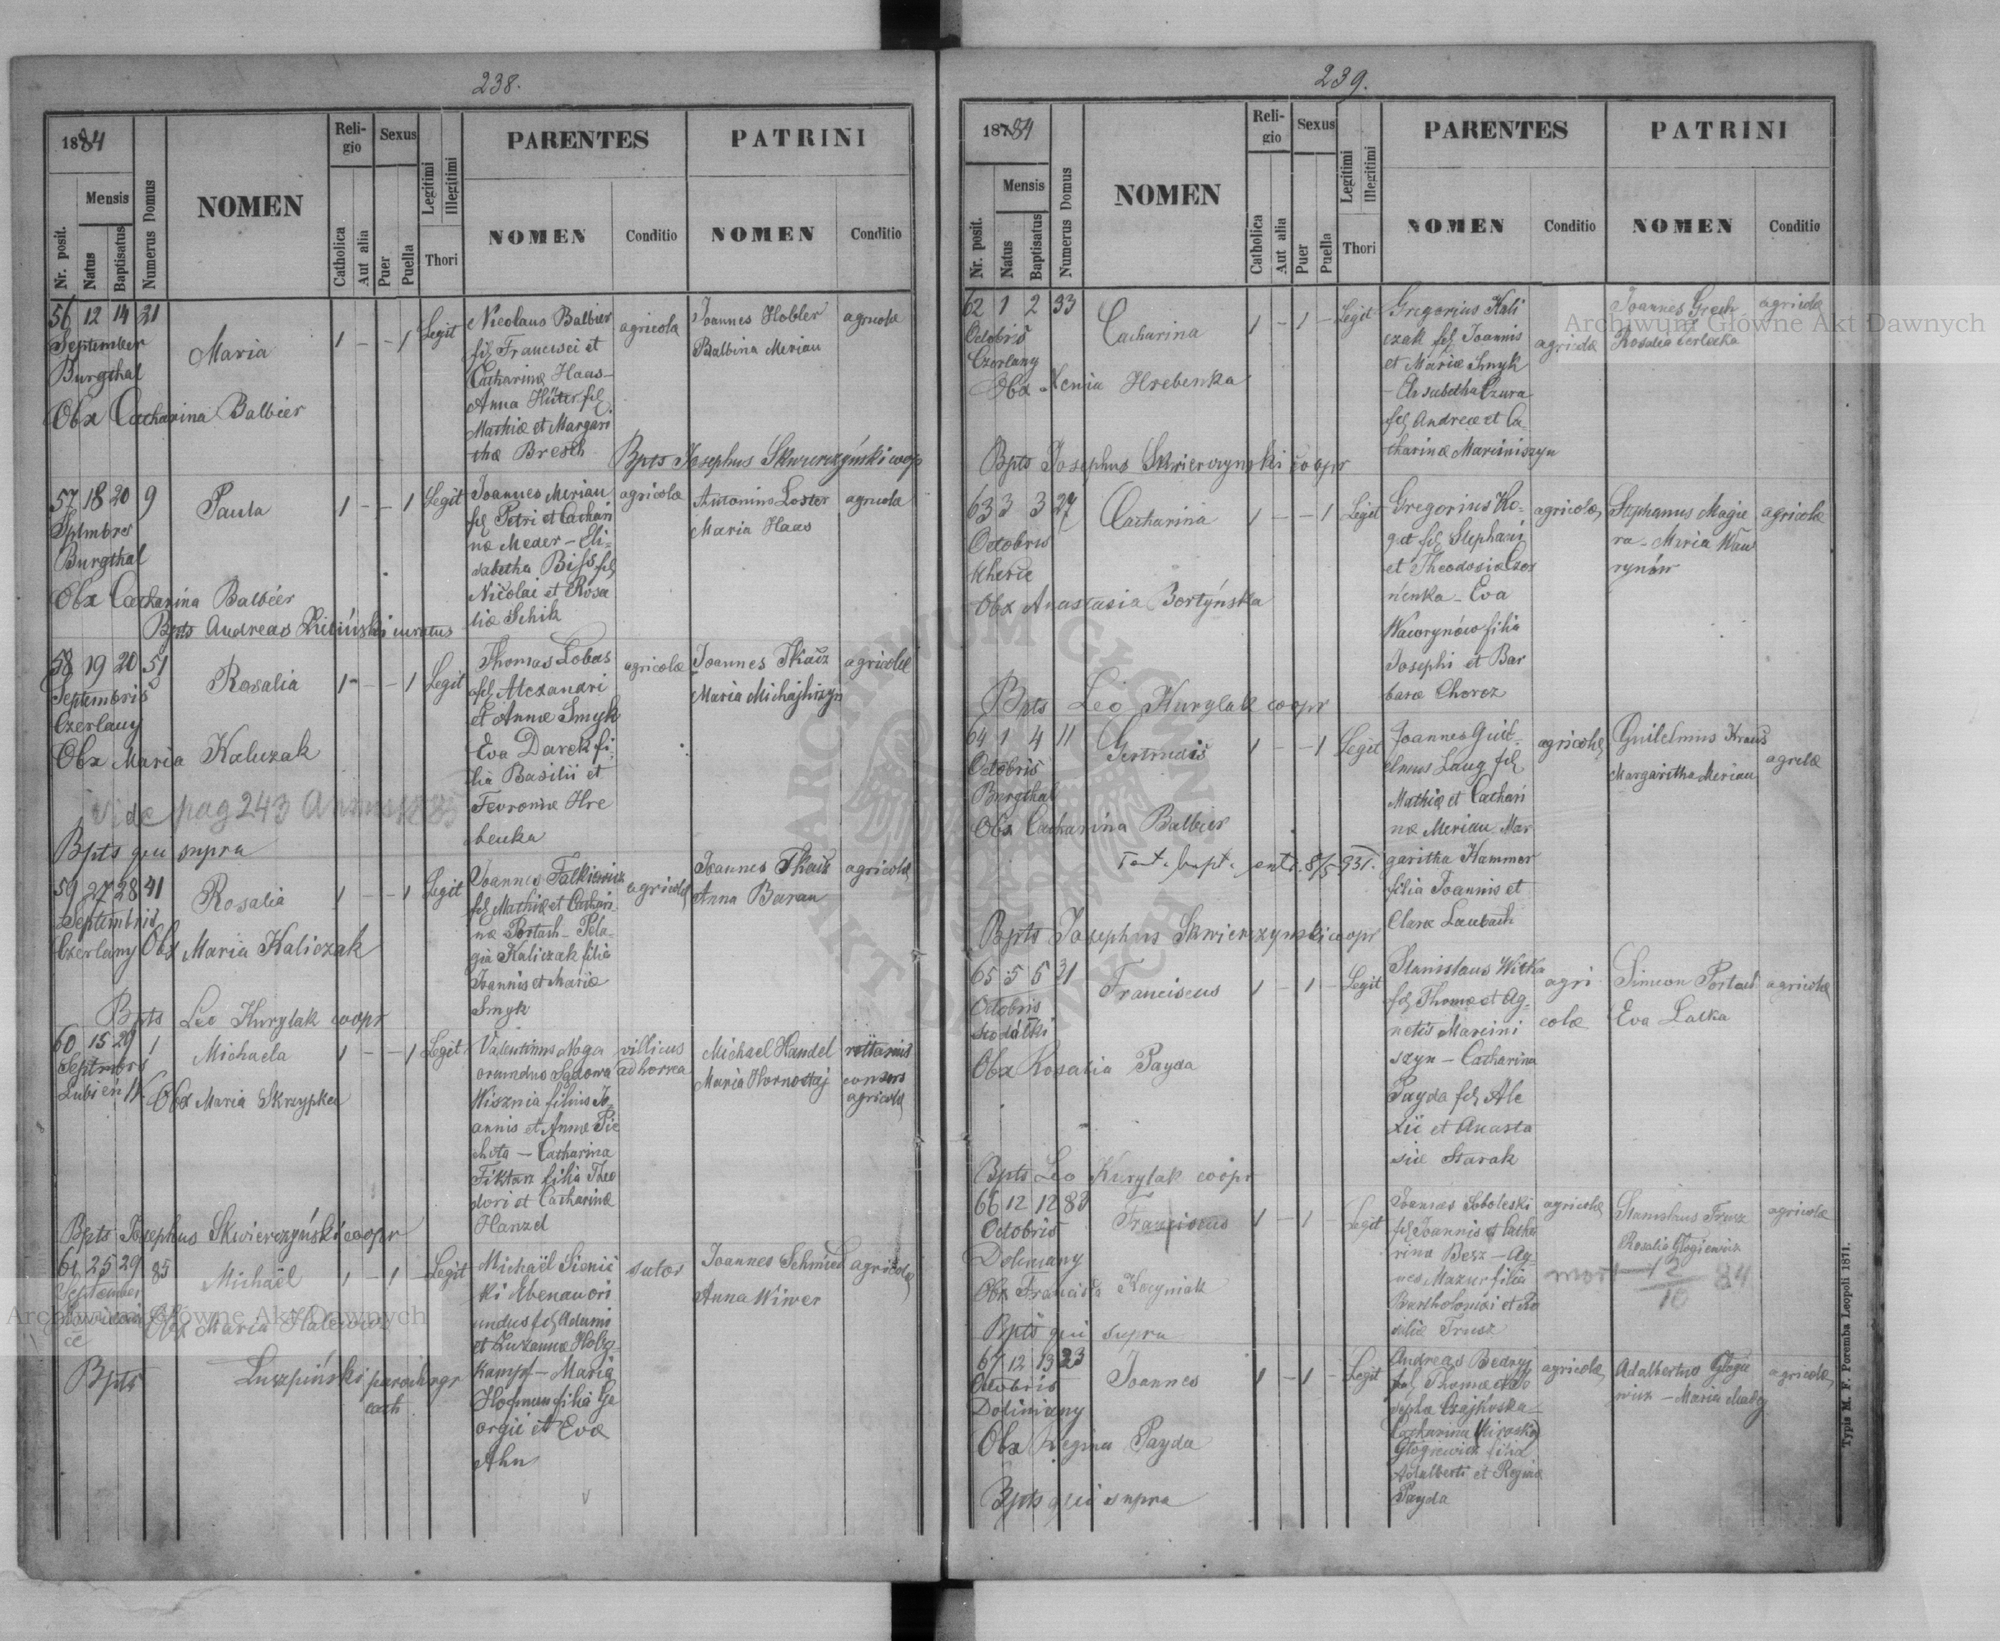 238.
1884
Mensis
Nr. posit.
Natus
Baptisatus
Numerus Domus
NOMEN
Religio
Catholica
Aut alia
Sexus
Puer
Puella
Legitimi
Illegitimi
Thori
PARENTES
NOMEN
Conditio
PATRINI
NOMEN
Conditio
56 12 14 21
September
Burgthal
Maria
1 - - 1 Legit
Nicolaus Balbier
fil Francisci et
Catharinæ Haas-
Anna Hüter fil
Mathiæ et Margari
thæ Bresch
agricolæ
Joannes Hobler
Balbina Meriau
agricolæ
Obx Catharina Balbier
Bpts Josephus Skwierczyński coop
57 18 20 9
Sptmbres
Burgthal
Paula
1 - - 1 Legit
Joannes Meriau
fil Petri et Cathari
næ Meder - Eli-
sabetha Biss fil
Nicolai et Rosa
liæ Schik
agricolæ
Antonius Loster
Maria Haas
agricolæ
Obx Catharina Balbier
Bpts Andreas curatus
58 19 20 51
Septembris
Czerlany
Rosalia
1 - - 1 Legit
Thomas Lobas
fil Alexandri
et Annæ Smyk
Eva Darek fi-
lia Basilii et
Fevroniæ Hre
benka
agricolæ
Joannes Tkacz
Maria Michajliszyn
agricolæ
Obx Maria Kaluzak
vide pag 243 Annus 1885
Bpts qui supra
59 27 28 41
Septembris
Czerlany
Rosalia
1 - - 1 Legit
Joannes Falkiewicz
fil Mathiæ et Cathari-
næ Portach - Pela-
gia Kaliczak filia
Joannis et Mariæ
Smyk
agricolæ
Joannes Tkacz
Anna Baran
agricolæ
Obx Maria Kaliczak
Bpts Leo Kurylak coopr
60 15 29 1
Septmbris
Lubień W.
Michaela
1 - - 1 Legit
Valentinus Noga
oriundus Sądowa
Wisznia filius Jo-
annis et Annæ Pie
chota - Catharina
Fiktan filia Theo
dori et Catharinæ
Hanzel
villicus
ad horrea
Michael Handel
Maria Hornostaj
rottarius
consors
agricolæ
Obx Maria Skrzypka
Bpts Josephus Skwierczyński coopr
61 25 29 85
September
Michaël
1 - 1 - Legit
Michaël Sienic
ki Ebenau ori
undus fil Adami
et Zuzannæ Holz-
kampf - Maria
Hofman filia Ge
orgii et Evæ
Ahn
sutor
Joannes Schmied
Anna Wiwer
agricolæ
Obx Maria
Bpts Luszpiński paroch gr
cath
239.
1884
Mensis
Nr. posit.
Natus
Baptisatus
Numerus Domus
NOMEN
Religio
Catholica
Aut alia
Sexus
Puer
Puella
Legitimi
Illegitimi
Thori
PARENTES
NOMEN
Conditio
PATRINI
NOMEN
Conditio
62 1 2 33
Octobris
Czerlany
Catharina
1 - 1 - Legit
Gregorius Kali
czak fil Joannis
et Mariæ Smyk
- Elisabetha Czura
fil Andreæ et Ca-
tharinæ Marciniszyn
agricolæ
Joannes Grech
Rosalia
agricolæ
Obx Xenia Hrebenka
Bpts Josephus Skwierczynski coopr
63 3 3 27
Octobris
Catharina
1 - - 1 Legit
Gregorius Ko-
gut fil Stephani
et Theodosiæ Czor
nenka - Eva
Wawrynów filia
Josephi et Bar
baræ Choroz
agricolæ
Stephanus Magie
ra - Maria Waw
rynów
agricolæ
Obx Anastasia Bortyńska
Bpts Leo Kurylak coopr
64 1 4 11
Octobris
Burgthal
Gertrudis
1 - - 1 Legit
Joannes Guil-
elmus Laug fil
Mathiæ et Cathari
næ Meriau Mar
garitha Hammer
filia Joannis et
Claræ Laubach
agricolæ
Guilelmus Kraus
Margaritha Meriau
agrclæ
Obx Catharina Balbier
Test. bapt. 8/5 931.
Bpts Josephus Skwierczynski coopr
65 5 5 31
Octobris
Siedliski
Franciscus
1 - 1 - Legit
Stanislaus Witka
fil Thomæ et Ag-
netis Marcini
szyn - Catharina
Payda fil Ale
xii et Anasta
siæ Starak
agri
colæ
Simeon Portach
Eva Lalka
agricolæ
Obx Rosalia Payda
Bpts Leo Kurylak coopr
66 12 12 83
Octobris
Doliniany
Franciscus
1 - 1 - Legit
Thomas Soboleski
fil Joannis et Catha
rina Besz - Ag-
nes Mazur filia
Bartholomæi et Ro
saliæ Frusz
agricolæ
Stanislaus Frusz
Rosalia Głogiewicz
agricolæ
mort 12/10 84
Obx Francisca Koryniak
Bpts qui supra
67 12 19 23
Octobris
Doliniany
Joannes
1 - 1 - Legit
Andreas Bedryj
fil Thomæ et Jo
sephæ Czajkoska
Catharina
Głogiewicz filia
Adalberti et Reginæ
Payda
agricolæ
Adalbertus Głogie
wicz - Maria
agricolæ
Obx Regina Payda
Bpts qui supra
Typis M. F. Poremba Leopoli 1871.
Archiwum Główne Akt Dawnych
Archiwum Główne Akt Dawnych
ARCHIWUM GŁÓWNE AKT DAWNYCH